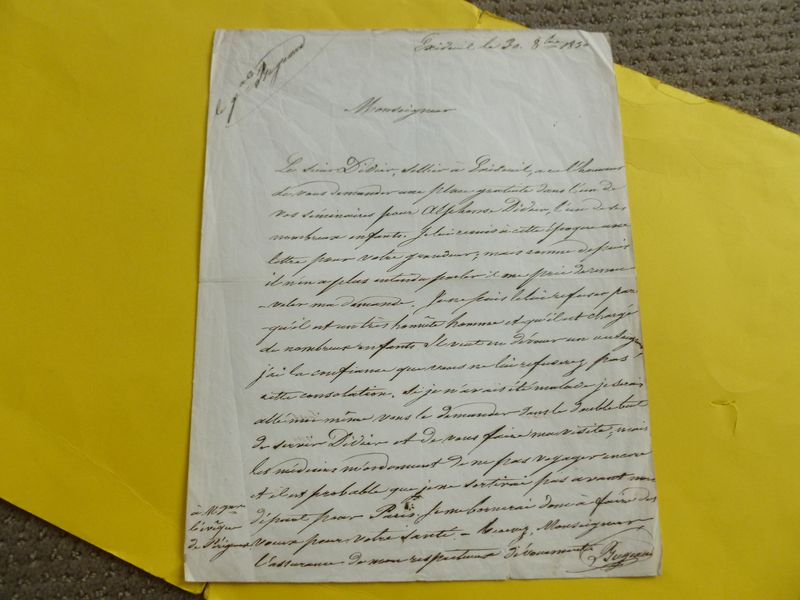 Exideuil le 30. 8bre 185
Bugeaud
Monseigneur
Le sieur Didier, sellier à Exideuil, a eu l'honneur
de vous demander une place gratuite dans l'un de
vos séminaires pour Alphonse Didier, l'un de ses
nombreux enfants. Je lui remis à cette époque une
lettre pour votre grandeur; mais comme depuis
il n'en a plus entendu parler il me prie de renou
-veler ma demande. Je ne puis le lui refuser par
qu'il est un très honnête homme et qu'il est chargé
de nombreux enfants. Il vient de
j'ai la confiance que vous ne lui refuserez pas
cette consolation. Si je n'avais été malade je serais
allé moi même vous le demander dans le double but
de servir Didier et de vous faire ma visite; mais
les médecins m'ordonnent de ne pas voyager encore
et il est probable que je ne sortirai pas avant mon
départ pour Paris. Je me bornerai donc à faire des
vœux pour votre santé. - Recevez, Monseigneur
l'assurance de mon respectueux dévouement
Bugeaud
à Mgneur
l'évêque
de Périgueux